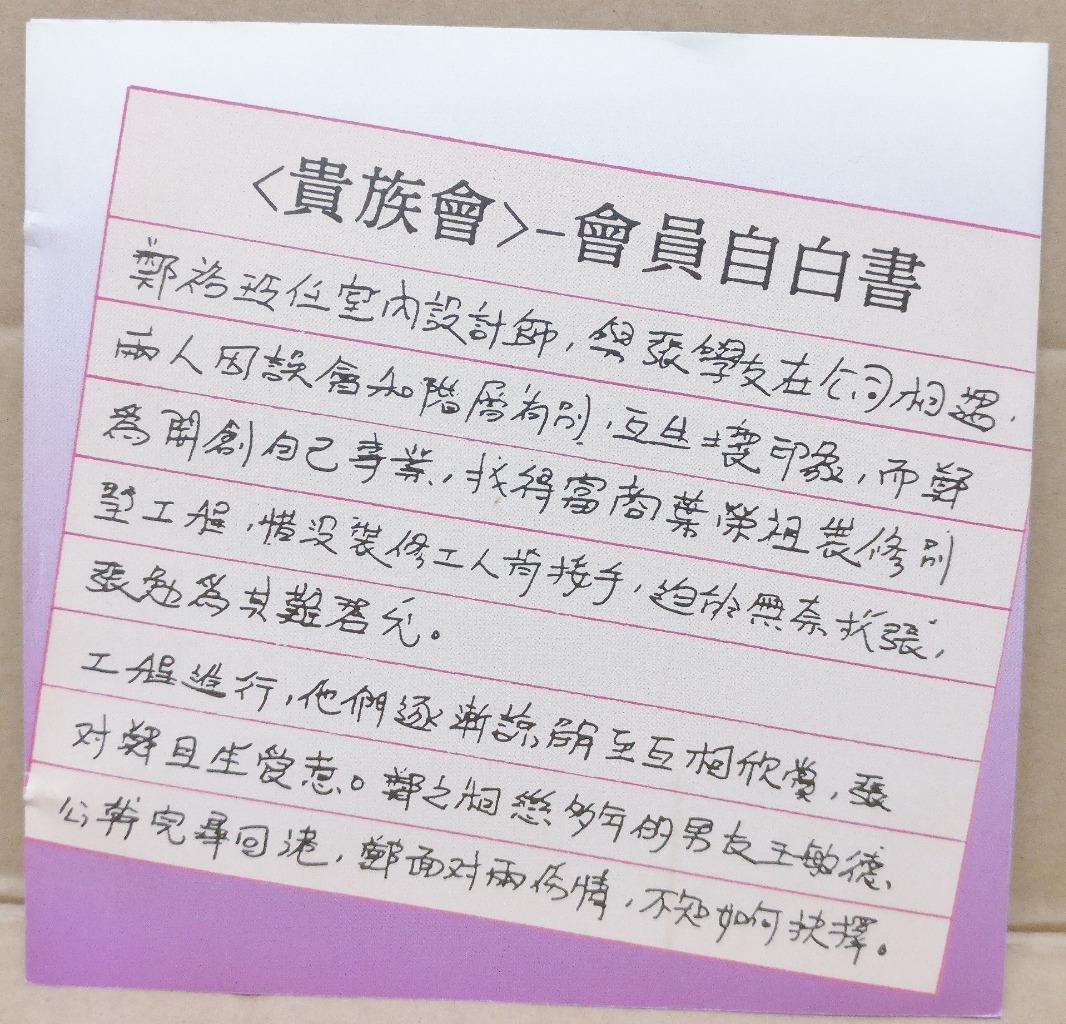 <貴族會>-會員自白書
鄭裕玲任室內設計師，與張學友在公司相遇，
兩人因誤會和階層有別，互生壞印象，而鄭
為開創自己事業，找得富商葉榮祖裝修別
墅工程，惜没裝修工人肯接手，迫於無奈找張，
張勉為其難答允。
工程進行，他們逐漸諒解至互相欣賞，張
对鄭且生愛意。鄭之相戀多年的男友王敏德
公幹完畢回港，鄭面对兩份情，不知如何抉擇。